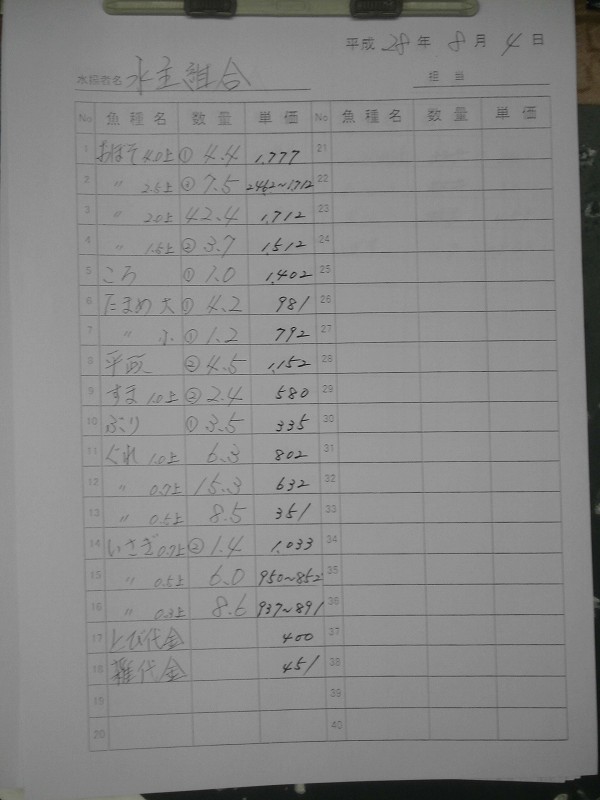 平成 28年 8月 4日
水揚者名 水主組合 担当
No 魚種名 数量 単価 No 魚種名 数量 単価
1 おほそ 4.0上 ① 4.4 1,777 21
2 〃 2.5上 ④ 7.5 2462~1,712 22
3 〃 2.0上 42.4 1,712 23
4 〃 1.5上 ② 3.7 1,512 24
5 ころ ① 1.0 1,402 25
6 たまめ 大 ① 4.2 981 26
7 〃 小 ① 1.2 792 27
8 平西 ② 4.5 1,152 28
9 すま 1.0上 ② 2.4 580 29
10 ぶり ① 3.5 335 30
11 ぐれ 1.0上 6.3 802 31
12 〃 0.7上 15.3 632 32
13 〃 0.5上 8.5 351 33
14 いさぎ 0.7上 ② 1.4 1,033 34
15 〃 0.5上 6.0 950~852 35
16 〃 0.3上 8.6 937~891 36
17 とび代金 400 37
18 雑代金 451 38
19 39
20 40